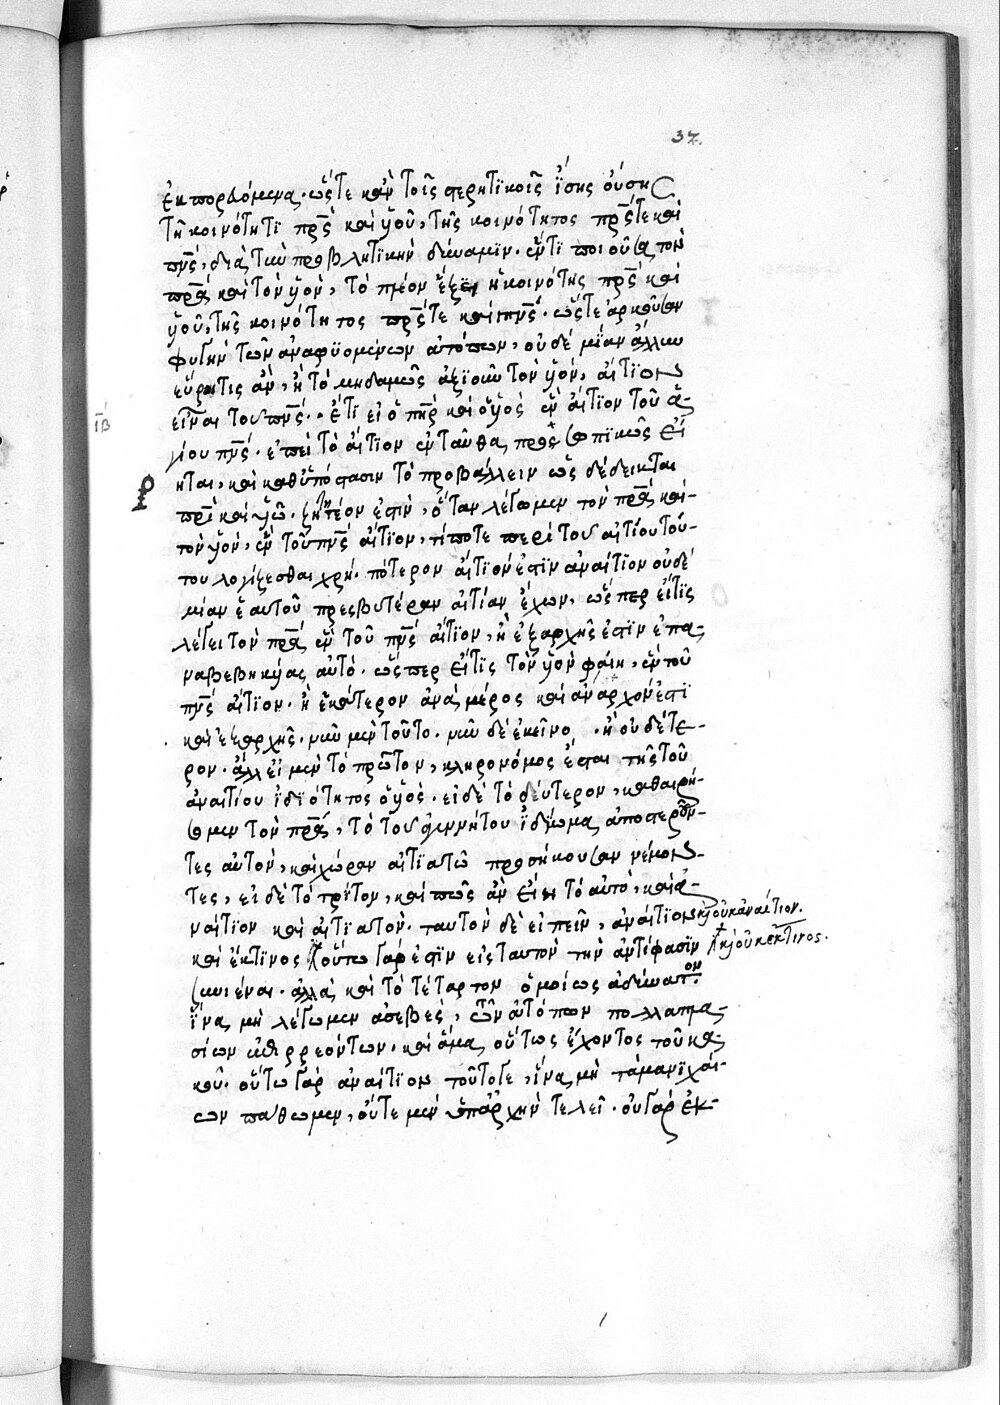 37.
ἐκπορευόμενα. ὥστε κἂν τοῖς στερητικοῖς ἴσης οὔσης
τῇ κοινότητι πρ̅ς καὶ υἱοῦ, τῆς κοινότητος πρ̅ς τε καὶ
πν̅ς, διὰ τὴν προβλητικὴν δύναμιν. ἔντι ποιοῦσα τὸν
πρ̅α καὶ τὸν υἱὸν, τὸ πλέον ἕξει ἡ κοινότης πρ̅ς καὶ
υἱοῦ, τῆς κοινότητος πρ̅ς τε καὶ πν̅ς. ὥστε ἀρκοῦσαν
φυγὴν τῶν ἀναφυομένων ἀτόπων, οὐδὲ μίαν ἄλλην
εὕροι τις ἂν, ἢ τὸ μηδαμῶς ἀξιοῦν τὸν υἱὸν, αἴτιον
εἶναι τοῦ πν̅ς. ἔτι εἰ ὁ πη̅ρ καὶ ὁ υἱὸς ἓν αἴτιον τοῦ ἁ-
ιβ
γίου πν̅ς. ἐπεὶ τὸ αἴτιον ἐνταῦθα προσωπικῶς εἴ-
ηται, καὶ καθ' ὑπόστασιν τὸ προβάλλειν ὡς δέδεικται
πρ̅ὶ καὶ υἱῷ. ζητητέον ἐστὶν, ὅταν λέγωμεν τὸν πρ̅α καὶ
τὸν υἱὸν, ἓν τοῦ πν̅ς αἴτιον, τί ποτε περὶ τοῦ αἰτίου τού-
του λογίζεσθαι χρή. πότερον αἴτιόν ἐστιν ἀναίτιον οὐδὲ
μίαν ἑαυτοῦ πρεσβυτέραν αἰτίαν ἔχων, ὥσπερ εἴ τις
λέγει τὸν πρ̅α ἓν τοῦ πν̅ς αἴτιον, ἢ ἐξ ἀρχῆς ἐστιν ἐπα-
ναβεβηκυίας αὐτό. ὥσπερ εἴ τις τὸν υἱὸν φαίη, ἓν τοῦ
πν̅ς αἴτιον. ἢ ἑκάτερον ἀνὰ μέρος καὶ ἄναρχόν ἐστι
καὶ ἐξ ἀρχῆς. νῦν μὲν τοῦτο. νῦν δὲ ἐκεῖνο. ἢ οὐδέτε-
ρον. ἀλλ' εἰ μὲν τὸ πρῶτον, κληρονόμος ἔσται τῆς τοῦ
ἀναιτίου ἰδιότητος ὁ υἱός. εἰ δὲ τὸ δεύτερον, καθαιρή-
σομεν τὸν πρ̅α, τὸ τοῦ ἀγεννήτου ἰδίωμα ἀποστεροῦν-
τες αὐτὸν, καὶ χώραν αἰτιατῷ προσήκουσαν νέμον-
τες, εἰ δὲ τὸ τρίτον, καὶ πῶς ἂν εἴη τὸ αὐτὸ, καὶ ἀ-
ναίτιον καὶ αἰτιατὸν. ταυτὸν δὲ εἰπεῖν, ἀναίτιον καὶ οὐκ ἀναίτιον.
καὶ ἔκ τινος οὕτω γάρ ἐστιν εἰς ταυτὸν τὴν ἀντίφασιν
καὶ οὐκ ἔκ τινος.
συνιέναι. ἀλλὰ καὶ τὸ τέταρτον ὁμοίως ἀδύνατον.
ἵνα μὴ λέγωμεν ἀσεβὲς, τῶν ἀτόπων πολλαπλα-
σίων ἐπιρρεόντων. καὶ ἅμα οὕτως ἔχοντος τοῦ κα-
κοῦ. οὔτω γὰρ ἀναίτιον τοῦτό γε, ἵνα μὴ τὰ μανιχαί-
ων πάθωμεν, οὔτε μὴν ὑπάρχὴν τελεῖ. οὐ γὰρ ἐκ-